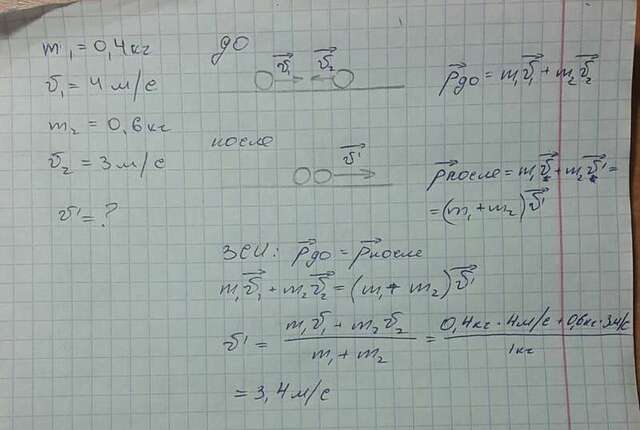 m₁ = 0,4кг
v₁ = 4 м/с
m₂ = 0,6кг
v₂ = 3 м/с
v' = ?
до
v⃗₁ v⃗₂
p⃗до = m₁v⃗₁ + m₂v⃗₂
после
v⃗'
p⃗после = m₁v⃗' + m₂v⃗' =
= (m₁ + m₂)v⃗'
ЗСИ: p⃗до = p⃗после
m₁v⃗₁ + m₂v⃗₂ = (m₁ + m₂)v⃗'
v' = (m₁v⃗₁ + m₂v⃗₂)/(m₁ + m₂) = (0,4кг · 4м/с + 0,6кг · 3м/с)/1кг
= 3,4 м/с